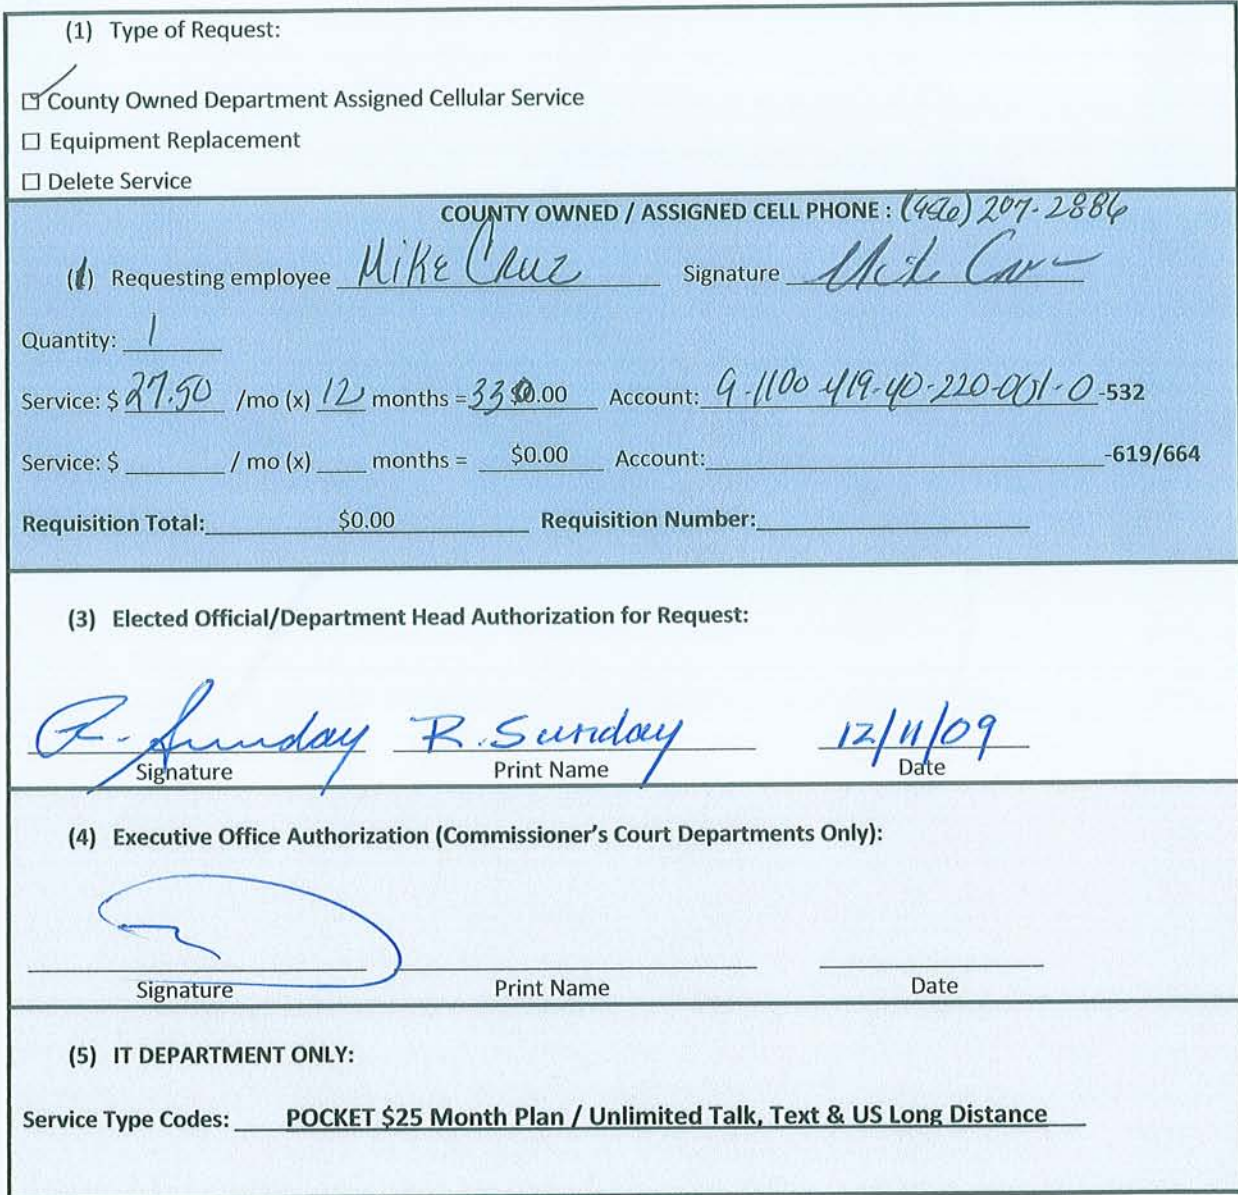 (1) Type of Request:
☑ County Owned Department Assigned Cellular Service
☐ Equipment Replacement
☐ Delete Service
COUNTY OWNED / ASSIGNED CELL PHONE : (956) 207-2886
Requesting employee Mike Cruz Signature Mike Cruz
Quantity: 1
Service: $ 27.50 /mo (x) 12 months = 330.00 Account: 9-1100-419-40-220-001-0 -532
Service: $ / mo (x) months = $0.00 Account: -619/664
Requisition Total: $0.00 Requisition Number:
(3) Elected Official/Department Head Authorization for Request:
R. Sunday R. Sunday 12/11/09
Signature Print Name Date
(4) Executive Office Authorization (Commissioner's Court Departments Only):
Signature Print Name Date
(5) IT DEPARTMENT ONLY:
Service Type Codes: POCKET $25 Month Plan / Unlimited Talk, Text & US Long Distance